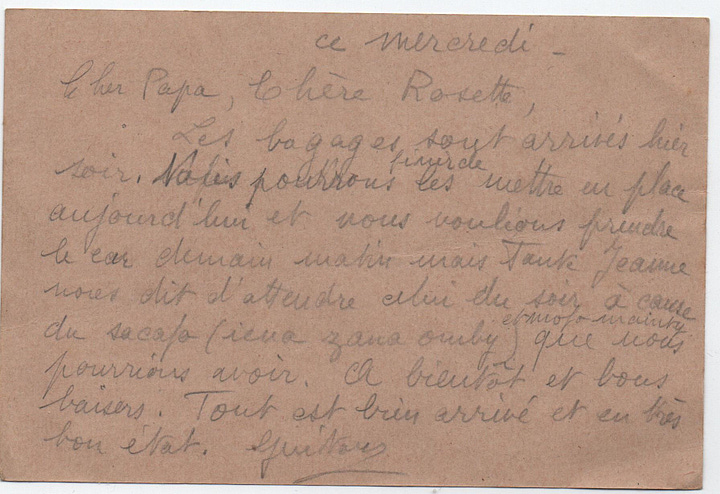 ce mercredi -
Cher Papa, Chère Rosette,
Les bagages sont arrivés hier
soir. Nous pourrons finir de les mettre en place
aujourd'hui et nous voulions prendre
le car demain matin mais Tante Jeanne
nous dit d'attendre celui du soir à cause
du sacafo (iena zana omby) et mofo mainty que nous
pourrions avoir. A bientôt et bons
baisers. Tout est bien arrivé et en très
bon état.